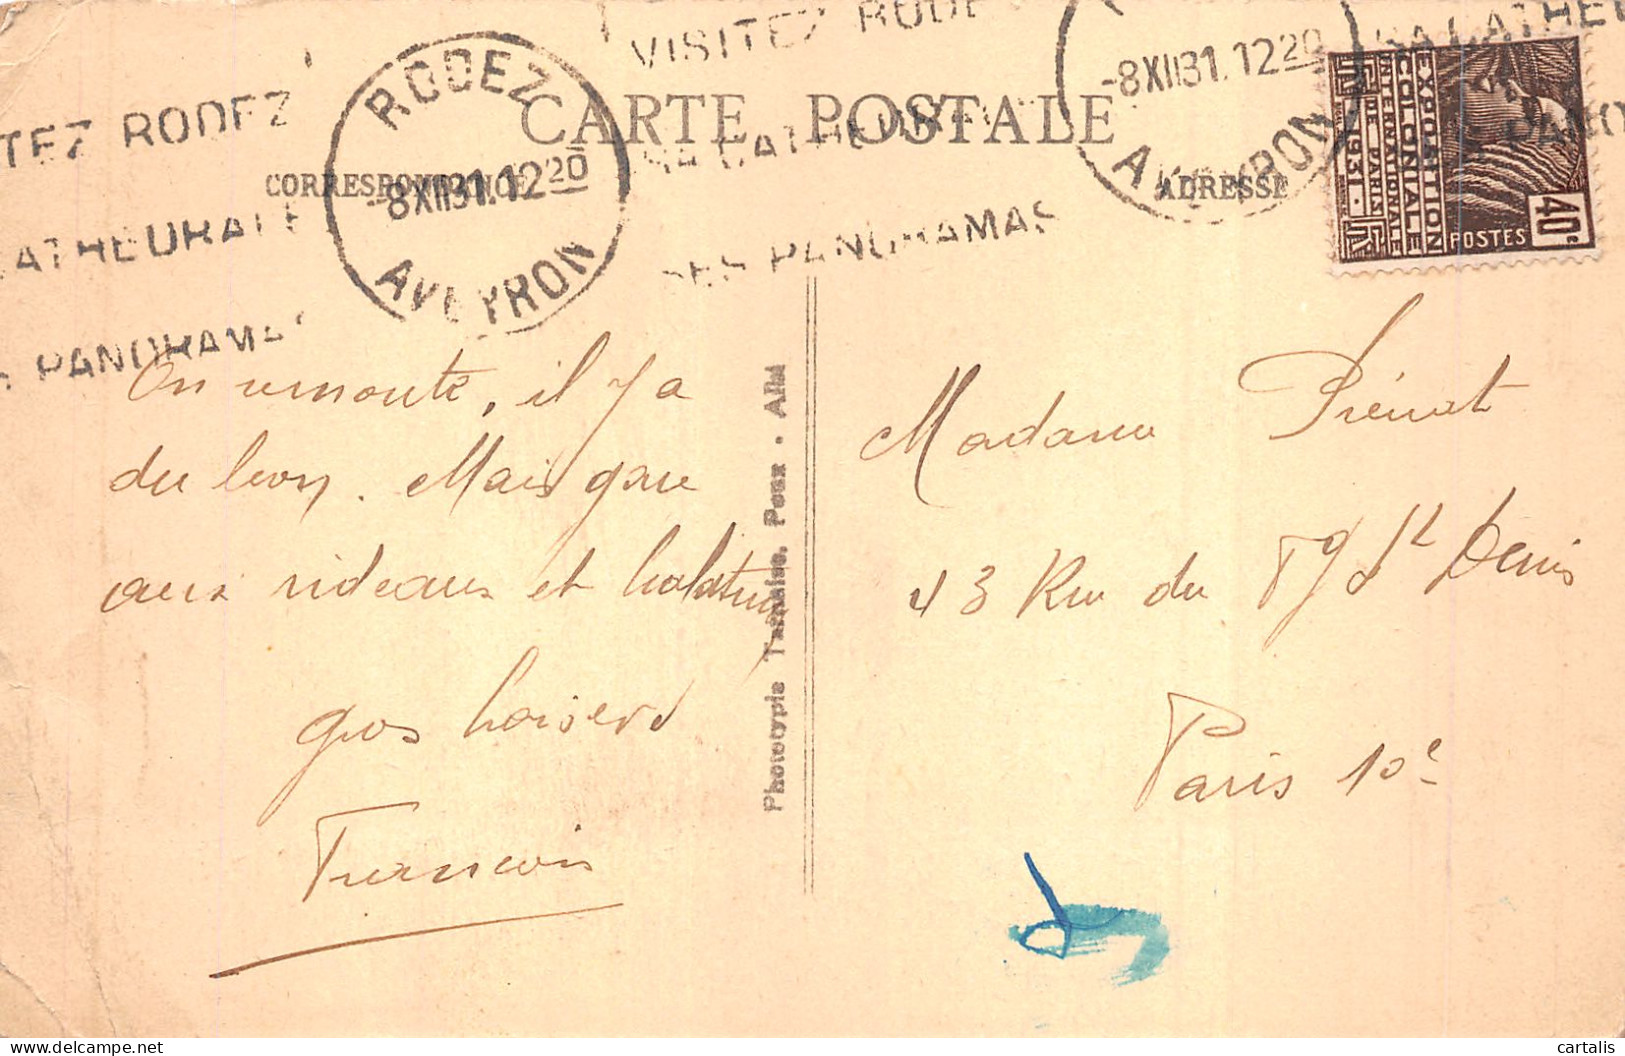 VISITEZ RODE
SA CATHEDRALE
SES PANORAMAS
TEZ RODEZ
CATHEDRALE
S PANORAMAS
RODEZ
-8 XII 31. 12 20
AVEYRON
-8 XII 31. 12 20
AVEYRON
SA CATHE
PANO
CARTE POSTALE
CORRESPONDANCE
ADRESSE
EXPOSITION
COLONIALE
INTERNATIONALE
DE PARIS
1931
POSTES
40c
On remonte, il y a
du bon. Mais gare
aux rideaux et
gros baisers
François
Madame
43 Rue du Fg St Denis
Paris 10e
Phototypie Tarnaise, Poux - Albi
cartalis